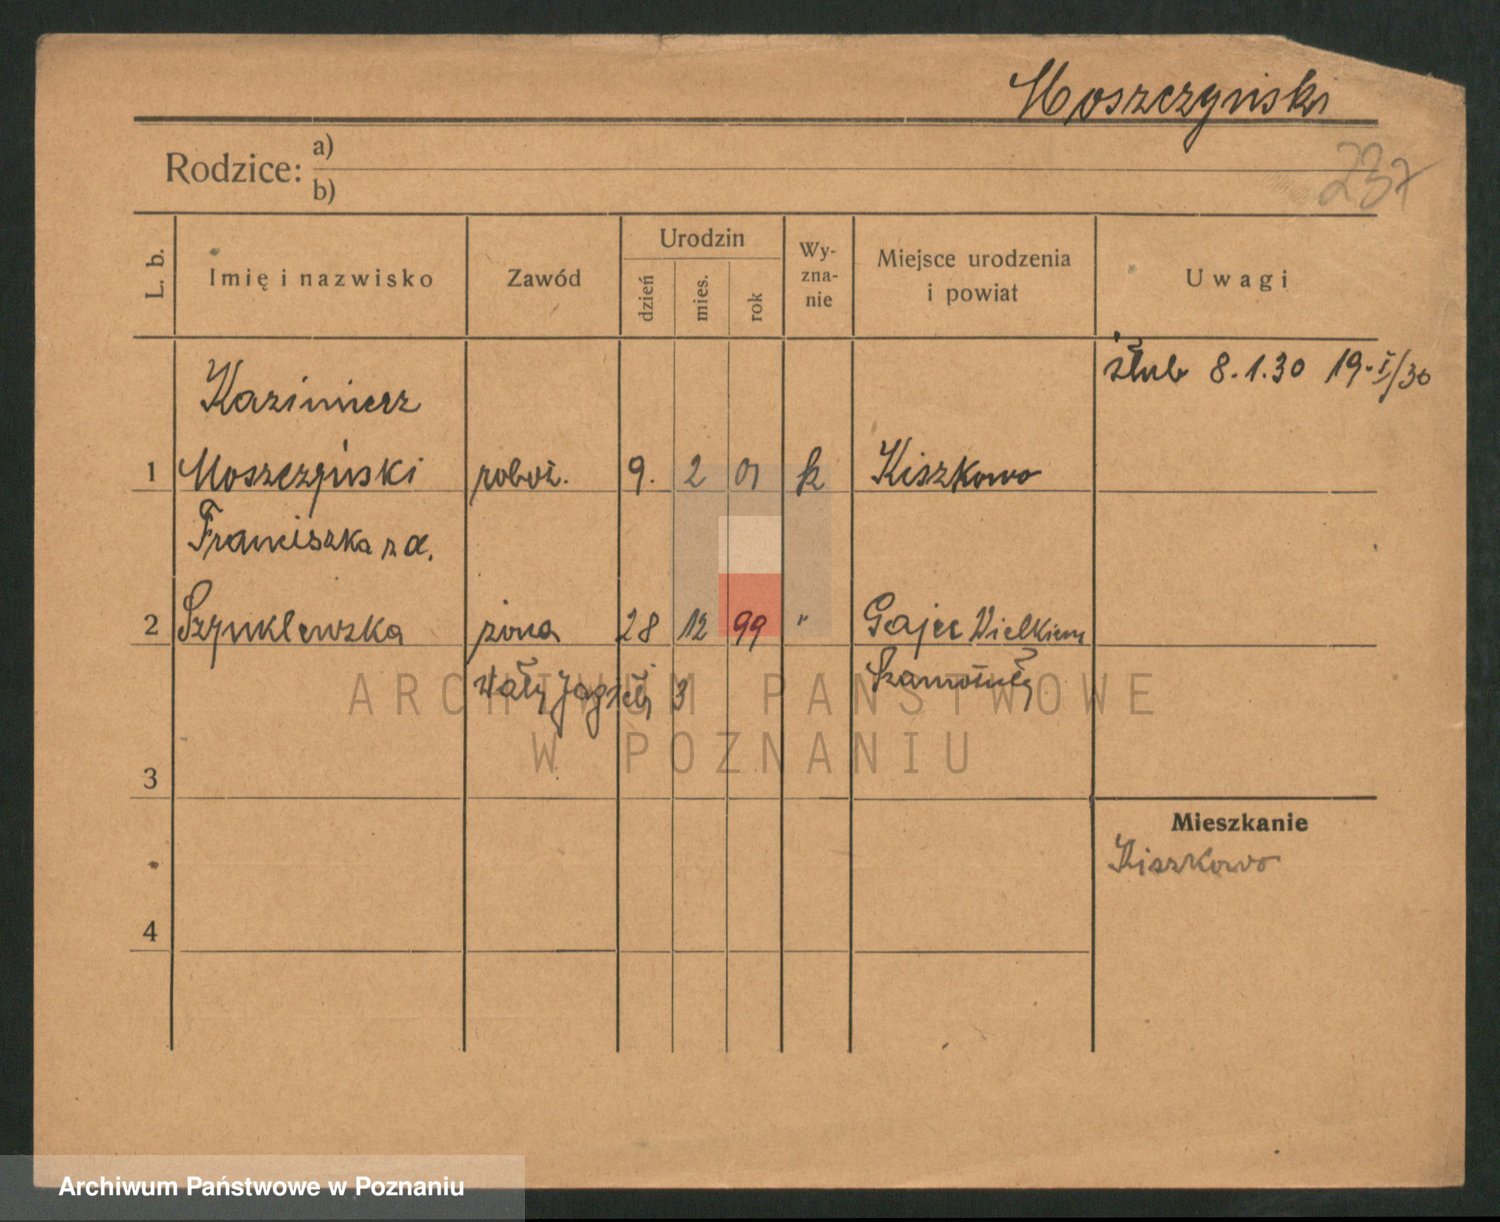 Moszczyński
237
Rodzice: a)
b)
L. b.
Imię i nazwisko
Zawód
Urodzin
dzień
mies.
rok
Wy-
zna-
nie
Miejsce urodzenia
i powiat
Uwagi
ślub 8.1.30 19.I/30
Kazimierz
1 Moszczyński robot. 9. 2 01 k Kiszkowo
Franciszka zd.
2 żona 28 12 99 " Gajec Wielkiem
Wały Jagiełły 3 Szamotuły
ARCHIWUM PAŃSTWOWE
W POZNANIU
3
Mieszkanie
Kiszkowo
4
Archiwum Państwowe w Poznaniu